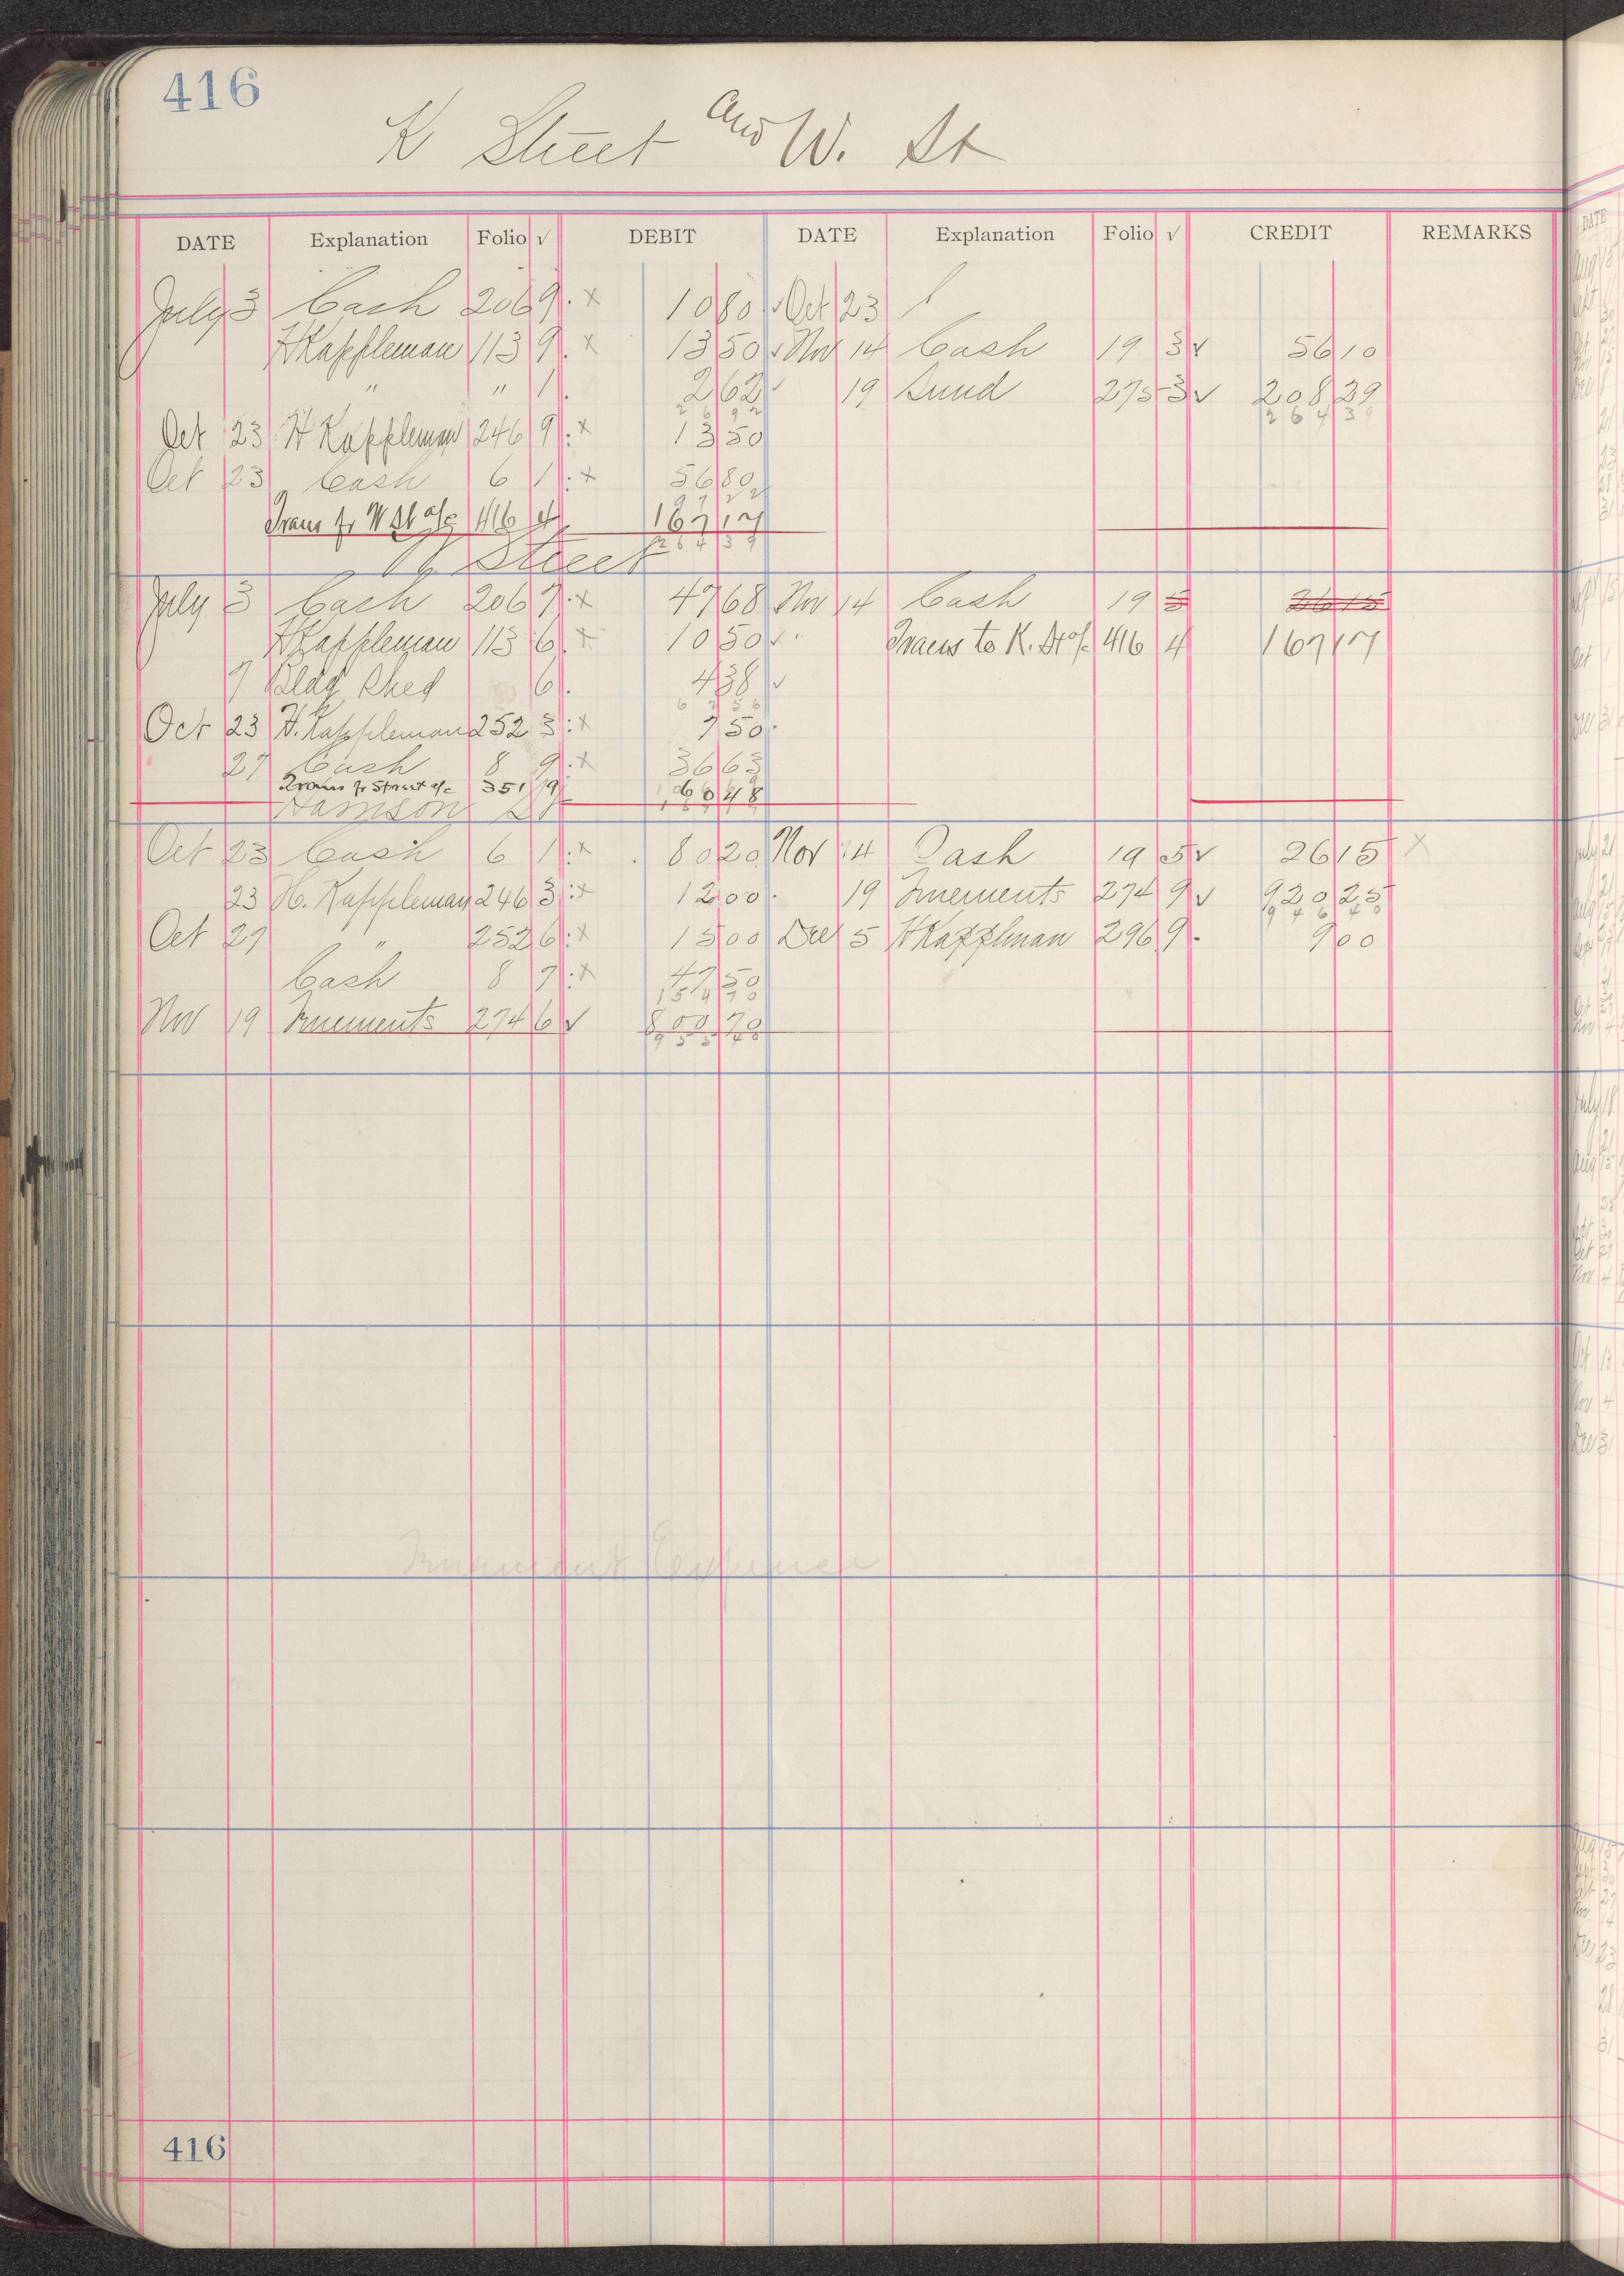 416
K Street and W. St
DATE Explanation Folio √ DEBIT DATE Explanation Folio √ CREDIT REMARKS
July 3 Cash 206 9 : x 10 80 √ Oct 23
H Kappleman 113 9 . x 13 50 √ Nov 14 Cash 19 3 √ 56 10
" " 1 . 2 62 √ 19 Sund 275 3 √ 208 29
26 92 264 39
Oct 23 H Kappleman 246 9 : x 13 50
Oct 23 Cash 6 1 : x 56 80
97 22
Trans fr W St a/c 416 4 167 17
264 39
W Street
July 3 Cash 206 7 : x 47 68 Nov 14 Cash 19 5 26 15
H Kappleman 113 6 . x 10 50 √ Trans to K. St a/c 416 4 167 17
7 Bldg Shed 6 . 4 38 √
62 56
Oct 23 H. Kappleman 252 3 : x 7 50
27 Cash 8 9 : x 36 63
Trans fr Street a/c 351 9 60 48
Harrison St
Oct 23 Cash 6 1 : x 80 20 Nov 14 Cash 19 5 √ 26 15 x
23 H. Kappleman 246 3 : x 12 00 19 274 9 √ 920 25
946 40
Oct 27 " 252 6 : x 15 00 Dec 5 H Kapplman 296 9 . 9 00
Cash 8 7 : x 47 50
154 70
Nov 19 274 6 √ 800 70
955 40
Expense
416